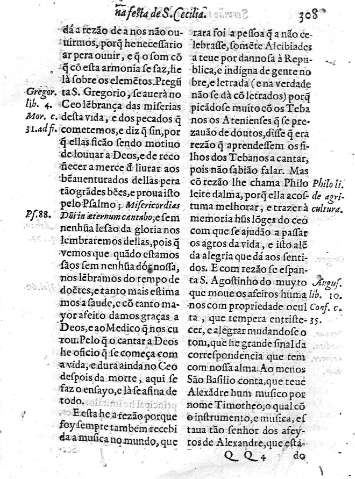 na festa de S. Cecilia.
308
dá a rezão de a nos não ou-
uirmos, porq̃ he necessario
ar pera ouuir, e q̃ o som cõ
q̃ cõ esta armonia se faz, he
lá sobre os elemẽtos. Pregũ
ta S. Gregorio, se auerá no
Ceo lẽbrança das miserias
desta vida, e dos pecados q̃
cometemos, e diz q̃ sin, por
q̃ ellas ficão sendo motiuo
de louuar a Deos, e de reco-
nhecer a merce d̃ liurar aos
bẽauenturados dellas pera
tão grãdes bẽes, e proua isto
pelo Psalmo; Misericordias
Dñi in æternum cantabo; e sem
nenhũa lesão da gloria nos
lembraremos dellas, pois q̃
vemos que quãdo estamos
sãos sem nenhũa dor nossa,
nos lẽbramos do tempo de
doẽtes, e tanto mais estima
mos a saude, e cõ tanto ma-
yor afeito damos graças a
Deos, e ao Medico q̃ nos cu
rou. Pelo q̃ o cantar a Deos
he oficio q̃ se começa com
a vida, e dura ainda no Ceo
despois da morte, aqui se
faz o ensayo, e lá se afina de
todo.
E esta he a rezão porque
foy sempre tambem recebi
da a musica no mundo, que
Gregor.
lib. 4.
Mor. c.
31. ad fi.
Ps. 88.
rara foi a pessoa q̃ a não ce
lebrasse, somẽte Alcibiades
a teue por danosa à Repu-
blica, e indigna de gente no
bre, e letrada (e na verdade
não se dá cõ letrados) porq̃
picádose muito cos os Teba
nos os Atenienses q̃ se pre-
zauão de doutos, disse q̃ era
rezão q̃ aprendessem os fi-
lhos dos Tebanos a cantar,
pois não sabião falar. Mas
cõ rezão lhe chama Philo
leire dalma, porq̃ ella acos-
tuma melhorar, e trazer à
memoria hũs lõges do ceo
com que se ajudão a passar
os agros da vida, e isto alẽ
da alegria que dá aos senti-
dos. E com rezão se espan-
ta S. Agostinho do muyto
que moue os afeitos huma
nos com propriedade ocul
ta, que tempera entriste-
cer, e alegrar mudandose o
tom, que he grande sinal da
correspondencia que tem
com nossa alma. Ao menos
São Basilio conta, que teue
Alexãdre hum musico por
nome Timotheo, o qual cõ
o instrumento, e musica, es
taua tão senhor dos afey-
tos de Alexandre, que està-
Philo li.
de agri-
cultura.
Augus.
lib. 10.
Conf. c.
35.
Q q 4
do